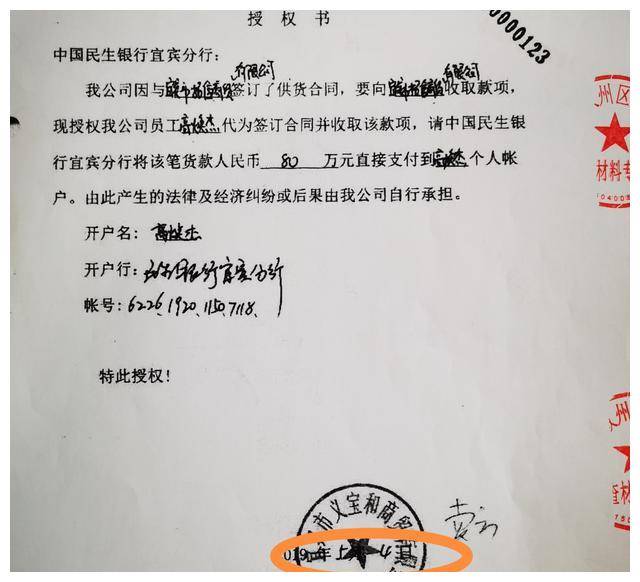 授权书
0000123
中国民生银行宜宾分行：
有限公司 有限公司
我公司因与 签订了供货合同，要向 收取款项，
现授权我公司员工高 杰代为签订合同并收取该款项，请中国民生银
行宜宾分行将该笔货款人民币 80 万元直接支付到 个人帐
户。由此产生的法律及经济纠纷或后果由我公司自行承担。
开户名：高 杰
开户行：民生银行宜宾分行
帐号：6226.1920.1150.7118.
特此授权！
州区
材料专
市义宝和商贸
年5